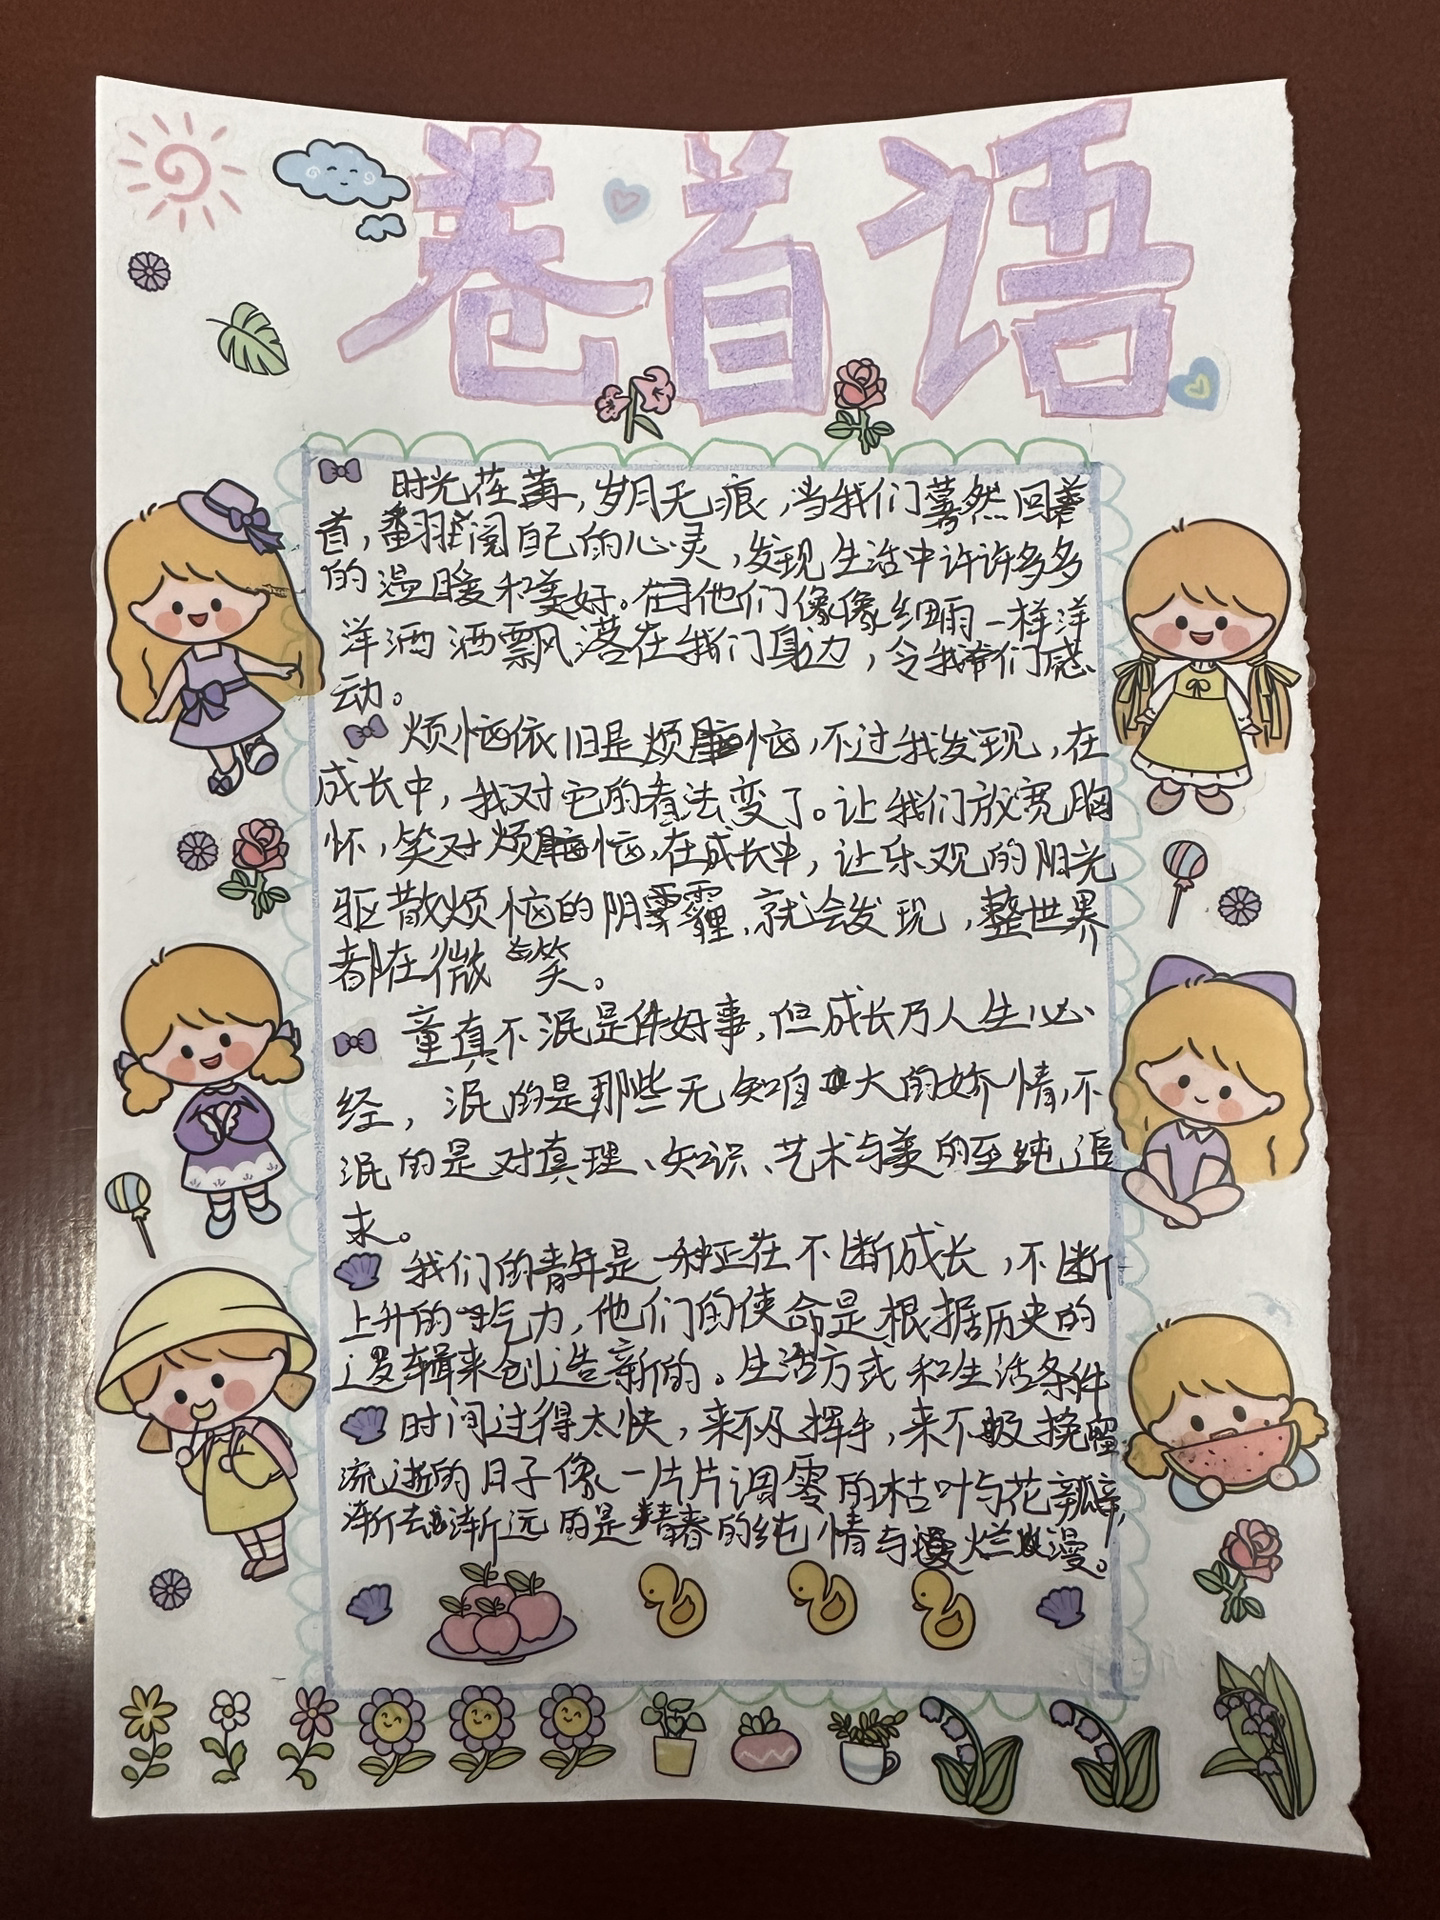 卷首语
时光荏苒,岁月无痕,当我们蓦然回
首,翻阅自己的心灵,发现生活中许许多多
的温暖和美好。他们像像细雨一样洋
洋洒洒飘落在我们身边,令我们感
动。
烦恼依旧是烦恼,不过我发现,在
成长中,我对它的看法变了。让我们放宽胸
怀,笑对烦恼,在成长中,让乐观的阳光
驱散烦恼的阴霾,就会发现,整世界
都在微笑。
童真不泯是件好事,但成长乃人生必
经,泯的是那些无知自大的娇情,不
泯的是对真理、知识、艺术与美的至纯追
求。
我们的青年是一种正在不断成长,不断
上升的力,他们的使命是根据历史的
逻辑来创造新的。生活方式和生活条件
时间过得太快,来不及挥手,来不及挽留
流逝的日子像一片片凋零的枯叶与花瓣,
渐去渐远的是青春的纯情与烂漫。